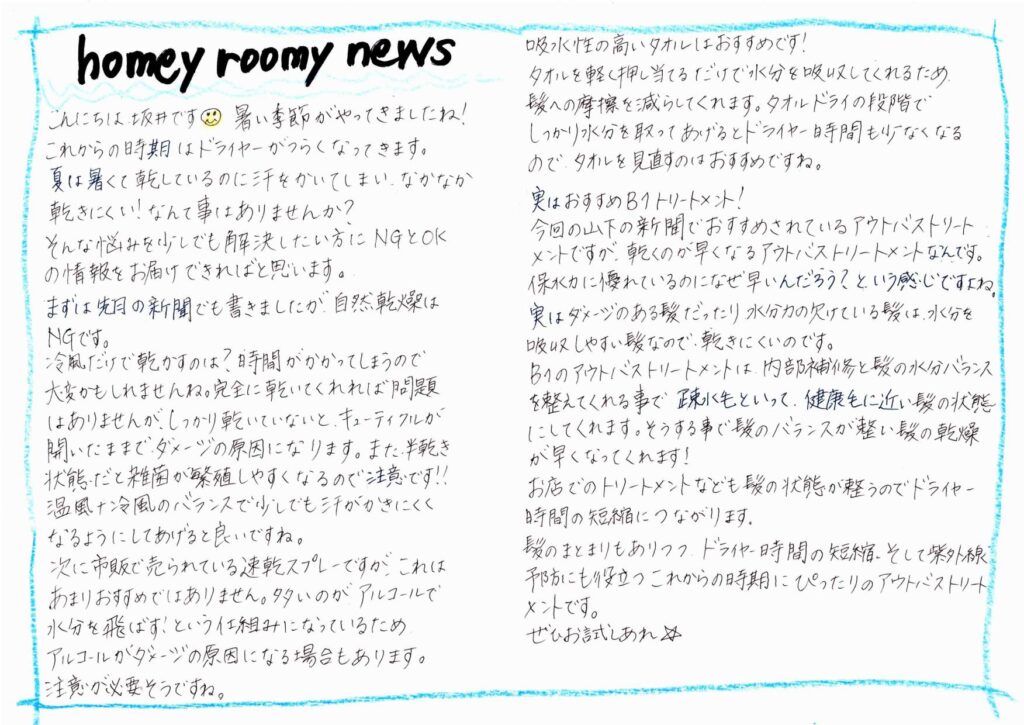 homey roomy news
こんにちは坂井です 暑い季節がやってきましたね!
これからの時期はドライヤーがつらくなってきます。
夏は暑くて乾しているのに汗をかいてしまい、なかなか
乾きにくい!なんて事はありませんか?
そんな悩みを少しでも解決したい方にNGとOK
の情報をお届けできればと思います。
まずは先月の新聞でも書きましたが、自然乾燥は
NGです。
冷風だけで乾かすのは?時間がかかってしまうので
大変かもしれませんね。完全に乾いてくれれば問題
はありませんが、しっかり乾いていないと、キューティクルが
開いたままでダメージの原因になります。また、半乾き
状態だと雑菌が繁殖しやすくなるので注意です!!
温風+冷風のバランスで少しでも汗がかきにくく
なるようにしてあげると良いですね。
次に市販で売られている速乾スプレーですが、これは
あまりおすすめではありません。多いのが、アルコールで
水分を飛ばす!という仕組みになっているため
アルコールがダメージの原因になる場合もあります。
注意が必要そうですね。
吸水性の高いタオルはおすすめです!
タオルを軽く押し当てるだけで水分を吸収してくれるため、
髪への摩擦を減らしてくれます。タオルドライの段階で
しっかり水分を取ってあげるとドライヤー時間も少なくなる
ので、タオルを見直すのはおすすめですね。
実はおすすめB1トリートメント!
今回の山下の新聞でおすすめされているアウトバストリート
メントですが、乾くのが早くなるアウトバストリートメントなんです。
保水力に優れているのになぜ早いんだろう?という感じですよね。
実はダメージのある髪だったり水分力の欠けている髪は、水分を
吸収しやすい髪なので、乾きにくいのです。
B1のアウトバストリートメントは、内部補修と髪の水分バランス
を整えてくれる事で 疎水毛といって、健康毛に近い髪の状態
にしてくれます。そうする事で髪のバランスが整い髪の乾燥
が早くなってくれます!
お店でのトリートメントなども髪の状態が整うのでドライヤー
時間の短縮につながります。
髪のまとまりもありつつ、ドライヤー時間の短縮、そして紫外線
予防にも役立つ、これからの時期にぴったりのアウトバストリート
メントです。
ぜひお試しあれ☆